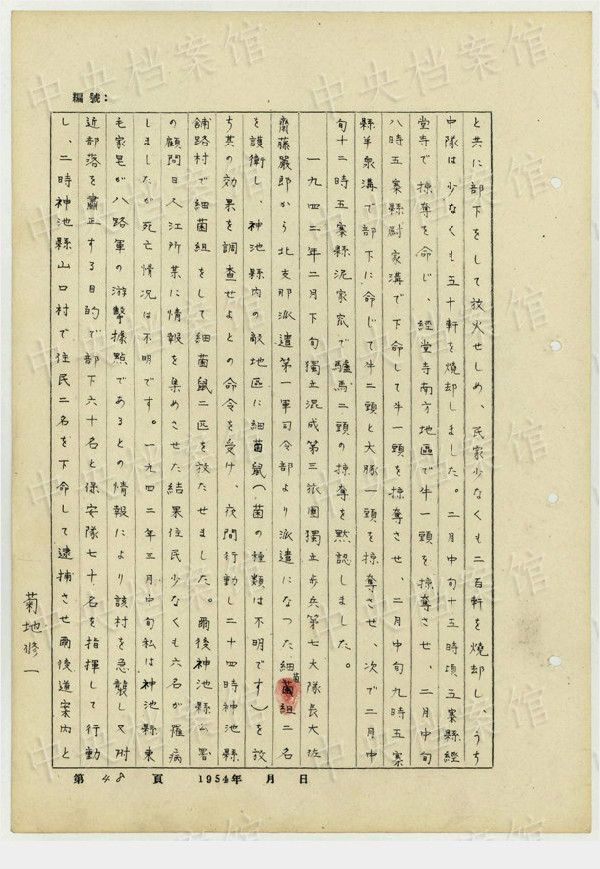 编號：
と共に部下をして放火せしめ、民家少なくも二百軒を燒却し、うち
中隊は少なくも五十軒を燒却しました。二月中旬十五時頃五寨縣經
堂寺で掠奪を命じ、經堂寺南方地區で牛一頭を掠奪させ、二月中旬
八時五寨縣尉家溝で下命して牛一頭を掠奪させ、二月中旬九時五寨
縣羊泉溝で部下に命じて牛二頭と大豚一頭を掠奪させ、次で二月中
旬十二時五寨縣泥家窊で驢馬二頭の掠奪を黙認しました。
一九四二年二月下旬獨立混成第三旅團獨立歩兵第七大隊長大佐
齋藤嚴郎から北支那派遣第一軍司令部より派遣になつた細菌組二名
菌
を護衛し、神池縣内の敵地區に細菌鼠(菌の種類は不明です)を放
ち其の効果を調査せよとの命令を受け、夜間行動し二十四時神池縣
舖路村で細菌組をして細菌鼠二匹を放たせました。爾後神池縣公署
の顧問日人江所某に情報を集めさせた結果住民少なくも六名が罹病
しましたが死亡情况は不明です。一九四二年三月中旬私は神池縣東
毛家皂が八路軍の游擊據點であるとの情報により該村を急襲し又附
近部落を肅正する目的で部下六十名と保安隊七十名を指揮して行動
し、二時神池縣山口村で住民二名を下命して逮捕させ爾後道案内と
菊地修一
第 48 頁 1954年 月 日
中央档案馆